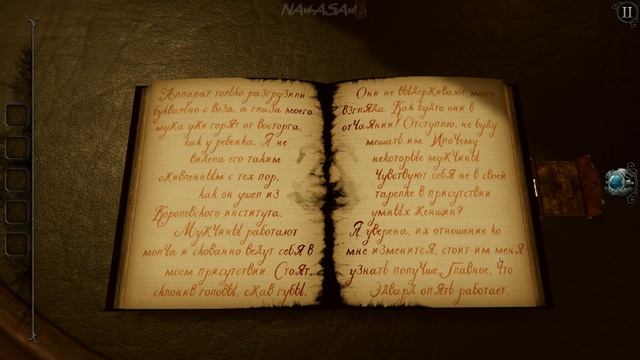 NAWASAW
Аппарат только разгрузили
буквально с воза, а глаза моего
мужа уже горят от восторга,
как у ребенка. Я не
видела его таким
оживленным с тех пор,
как он ушел из
Королевского института.
Мужчины работают
молча и скованно ведут себя в
моем присутствии. Стоят,
склонив головы, сжав губы.
Они не выдерживают моего
взгляда. Как будто они в
отчаянии! Отступлю, не буду
мешать им. И почему
некоторые мужчины
чувствуют себя не в своей
тарелке в присутствии
умных женщин?
Я уверена, их отношение ко
мне изменится, стоит им меня
узнать получше. Главное, что
Эдвард опять работает.